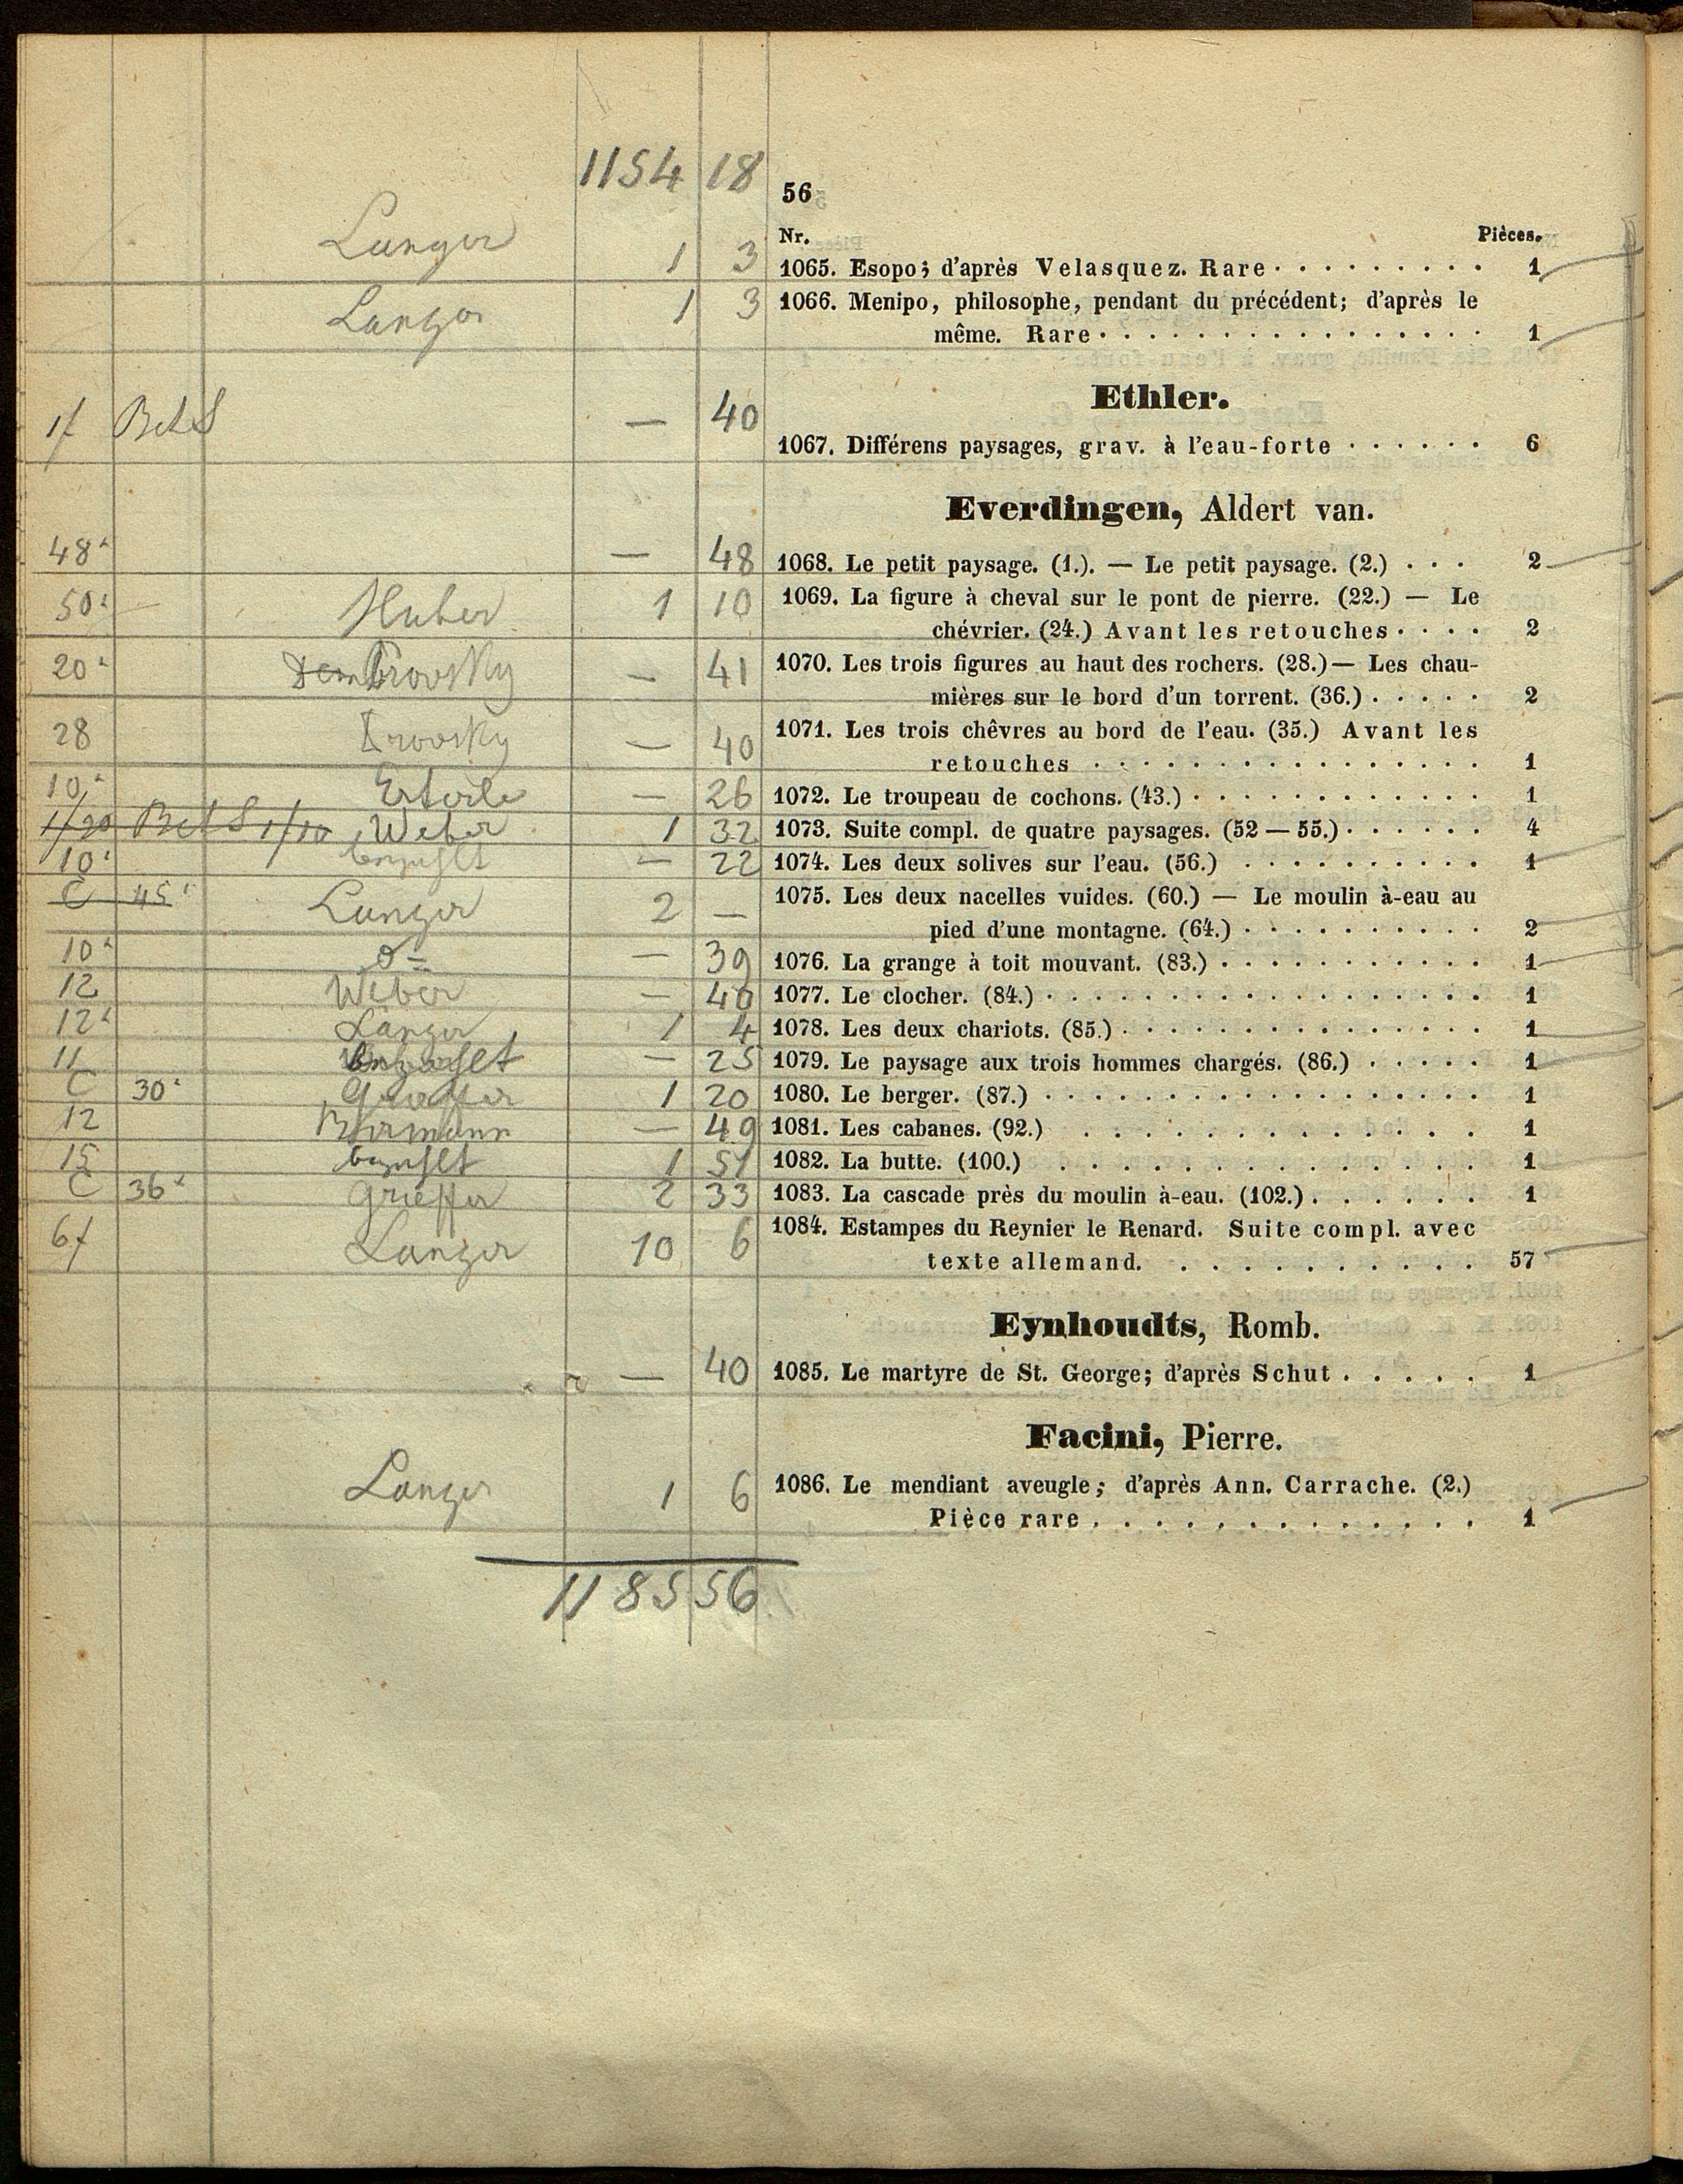 1154 18
56
Nr. Pièces.
Langer 1 3 1065. Esopo; d'après Velasquez. Rare 1
Langer 1 3 1066. Menipo, philosophe, pendant du précédent; d'après le
même. Rare 1
Ethler.
1f — 40 1067. Différens paysages, grav. à l'eau-forte 6
Everdingen, Aldert van.
48 — 48 1068. Le petit paysage. (1.). — Le petit paysage. (2.) 2
50 Huber 1 10 1069. La figure à cheval sur le pont de pierre. (22.) — Le
chévrier. (24.) Avant les retouches 2
20 — 41 1070. Les trois figures au haut des rochers. (28.) — Les chau-
mières sur le bord d'un torrent. (36.) 2
28 — 40 1071. Les trois chêvres au bord de l'eau. (35.) Avant les
retouches 1
10 — 26 1072. Le troupeau de cochons. (43.) 1
Weber 1 32 1073. Suite compl. de quatre paysages. (52 — 55.) 4
10 — 22 1074. Les deux solives sur l'eau. (56.) 1
C 45 Langer 2 — 1075. Les deux nacelles vuides. (60.) — Le moulin à-eau au
pied d'une montagne. (64.) 2
10 — 39 1076. La grange à toit mouvant. (83.) 1
12 Weber — 40 1077. Le clocher. (84.) 1
12 Langer 1 4 1078. Les deux chariots. (85.) 1
11 — 25 1079. Le paysage aux trois hommes chargés. (86.) 1
C 30 1 20 1080. Le berger. (87.) 1
12 — 49 1081. Les cabanes. (92.) 1
15 1 51 1082. La butte. (100.) 1
C 36 Grieffer 2 33 1083. La cascade près du moulin à-eau. (102.) 1
6f Langer 10 6 1084. Estampes du Reynier le Renard. Suite compl. avec
texte allemand. 57
Eynhoudts, Romb.
— 40 1085. Le martyre de St. George; d'après Schut 1
Facini, Pierre.
Langer 1 6 1086. Le mendiant aveugle; d'après Ann. Carrache. (2.)
Pièce rare 1
1185 56